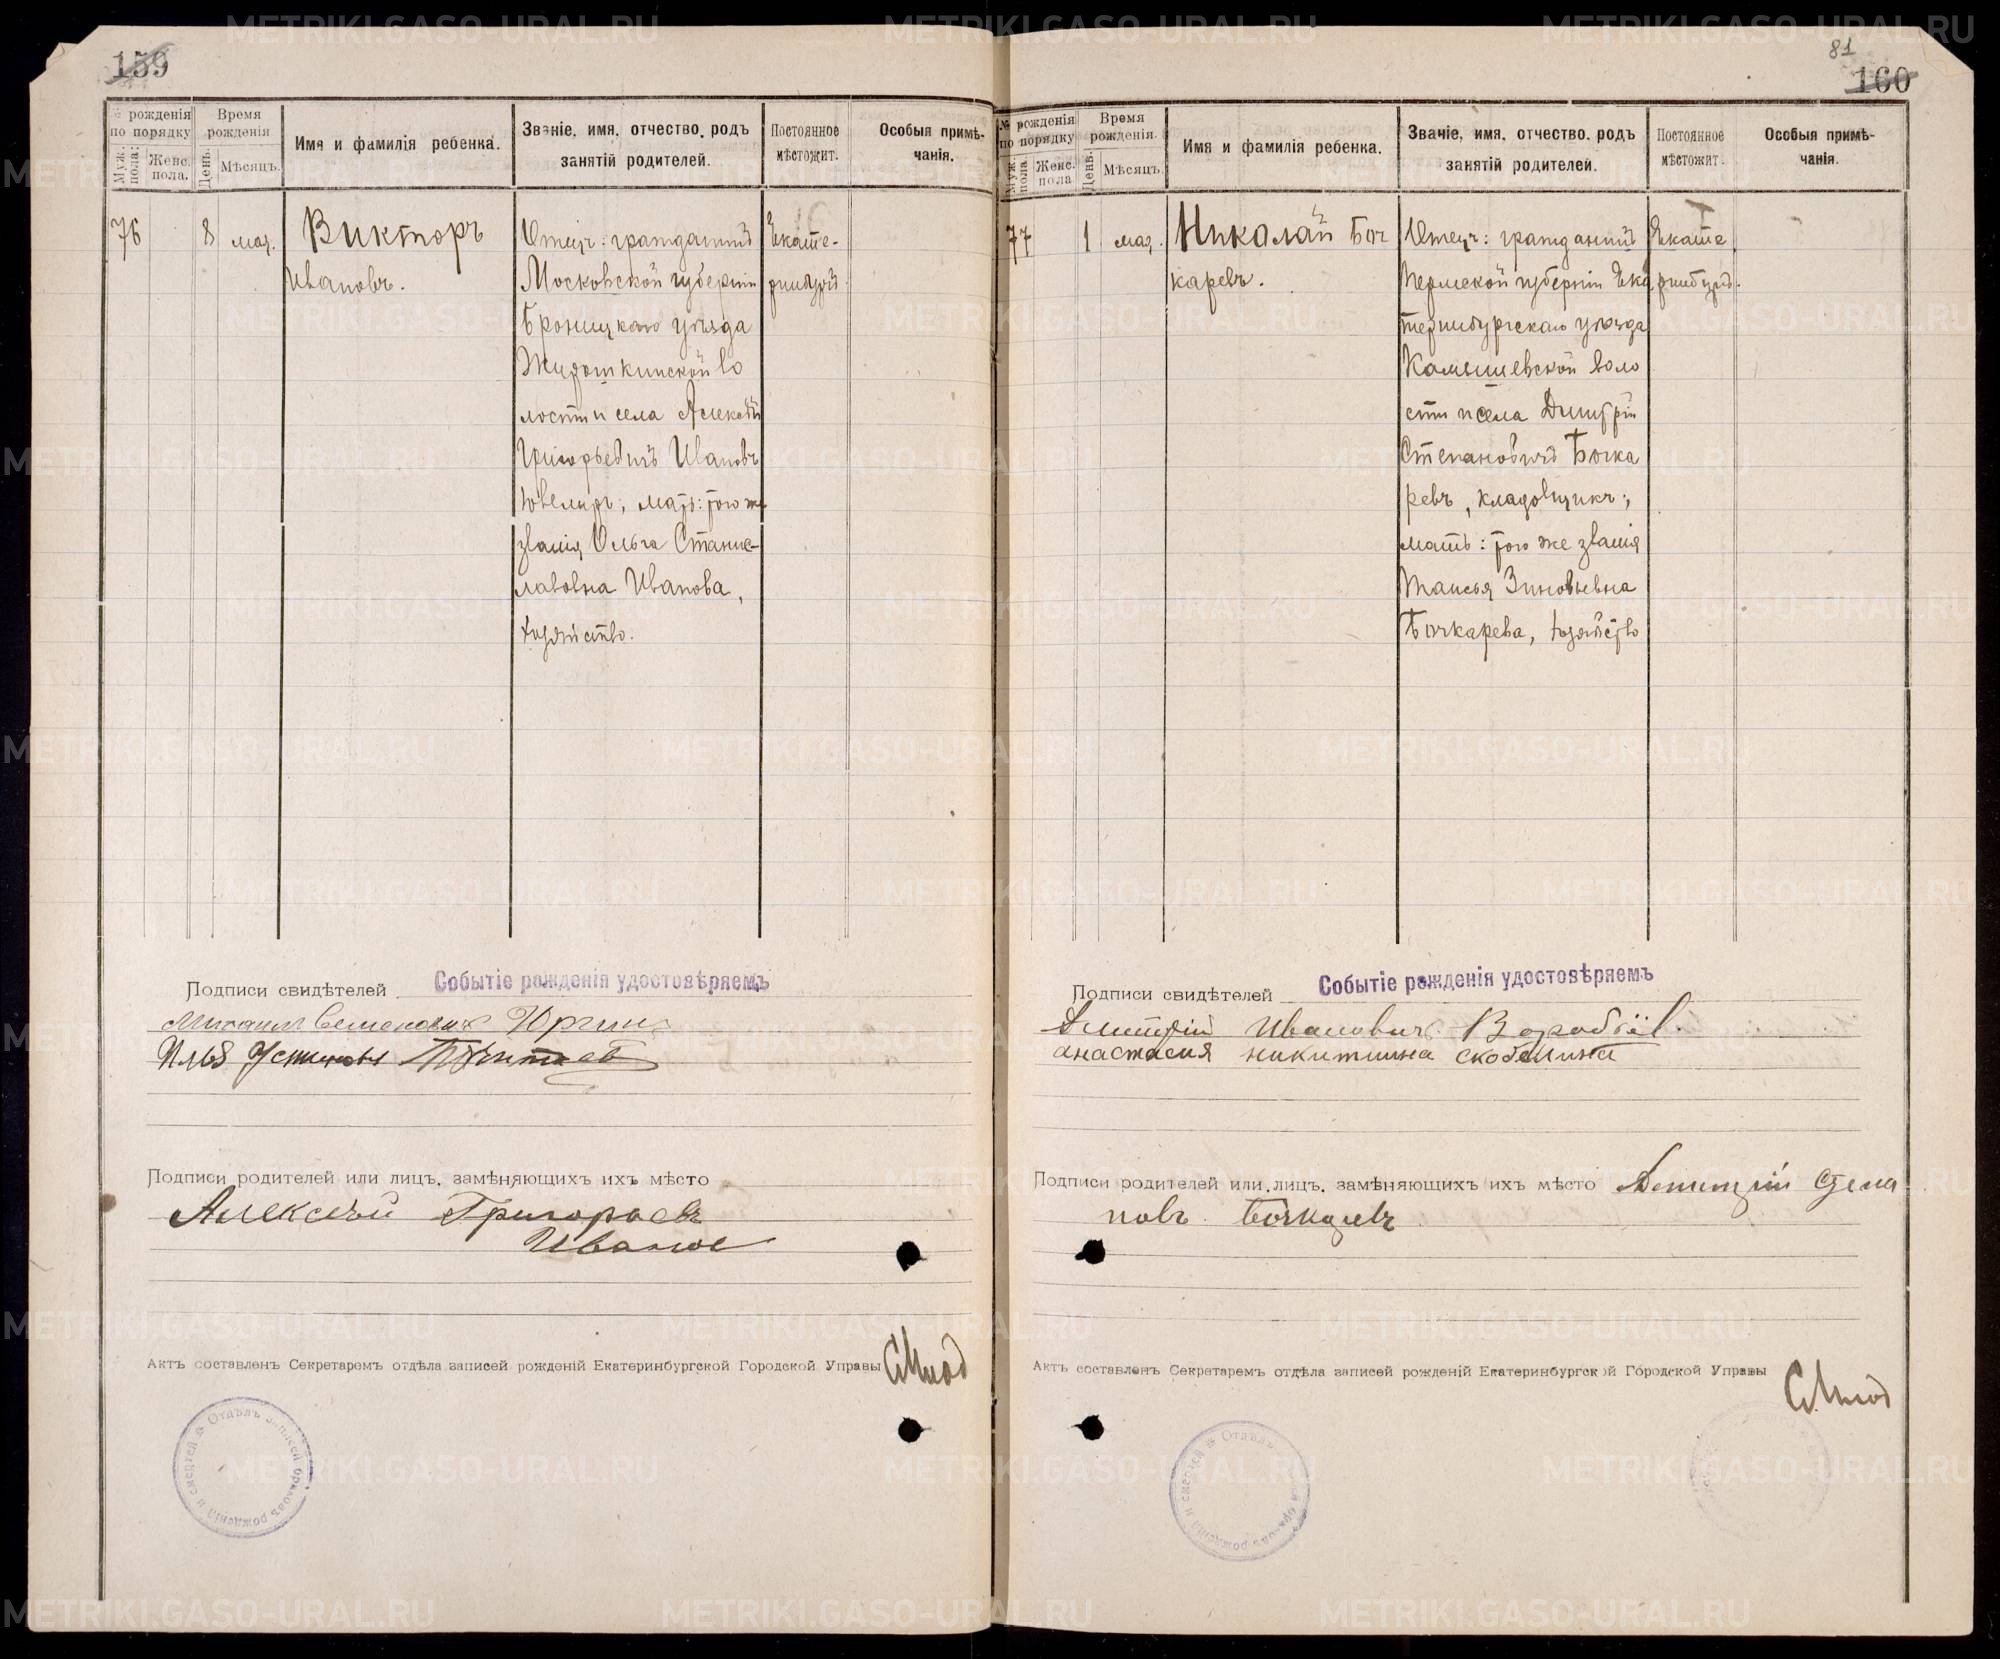 159
№ рожденія по порядку
Муж. пола:
Женс. пола.
Время рожденія
День.
Мѣсяцъ.
Имя и фамилія ребенка.
Званіе, имя, отчество, родъ
занятій родителей.
Постоянное
мѣстожит.
Особыя примѣ-
чанія.
76
8
мая.
Викторъ
Ивановъ.
Отецъ: гражданинъ
Московской губерніи
Бронницкаго уѣзда
Жирошкинской во
лости села Алексѣй
Григорьевичъ Ивановъ
ювелиръ; мать: того же
званія Ольга Станис-
лавовна Иванова,
хозяйство.
Екате-
ринбург
Подписи свидѣтелей
Событіе рожденія удостовѣряемъ
Михаил Семенович Юргин
Илья Устинович
Подписи родителей или лицъ, замѣняющихъ ихъ мѣсто
Алексѣй Григорьевъ
Иванов
Актъ составленъ Секретаремъ отдѣла записей рожденій Екатеринбургской Городской Управы
Отдѣлъ записей браковъ рожденій и смертей
81
160
№ рожденія по порядку
Муж. пола
Женс. пола
Время рожденія.
День.
Мѣсяцъ.
Имя и фамилія ребенка.
Званіе, имя, отчество, родъ
занятій родителей.
Постоянное
мѣстожит.
Особыя примѣ-
чанія.
77
1
мая.
Николай Боч
каревъ.
Отецъ: гражданинъ
Пермской губерніи Ека
теринбургскаго уѣзда
Камышевской воло
сти и села Димитрій
Степановичъ Бочка
ревъ, кладовщикъ;
мать: того же званія
Таисья Зиновьевна
Бочкарева, хозяйство
Екате
ринбург.
Подписи свидѣтелей
Событіе рожденія удостовѣряемъ
Дмитрій Ивановичъ Воробьёв.
анастасия никитишна скобелина
Подписи родителей или лицъ, замѣняющихъ ихъ мѣсто Димитрій Степа
новъ Бочкаревъ
Актъ составленъ Секретаремъ отдѣла записей рожденій Екатеринбургской Городской Управы
Отдѣлъ записей браковъ рожденій и смертей
METRIKI.GASO-URAL.RU